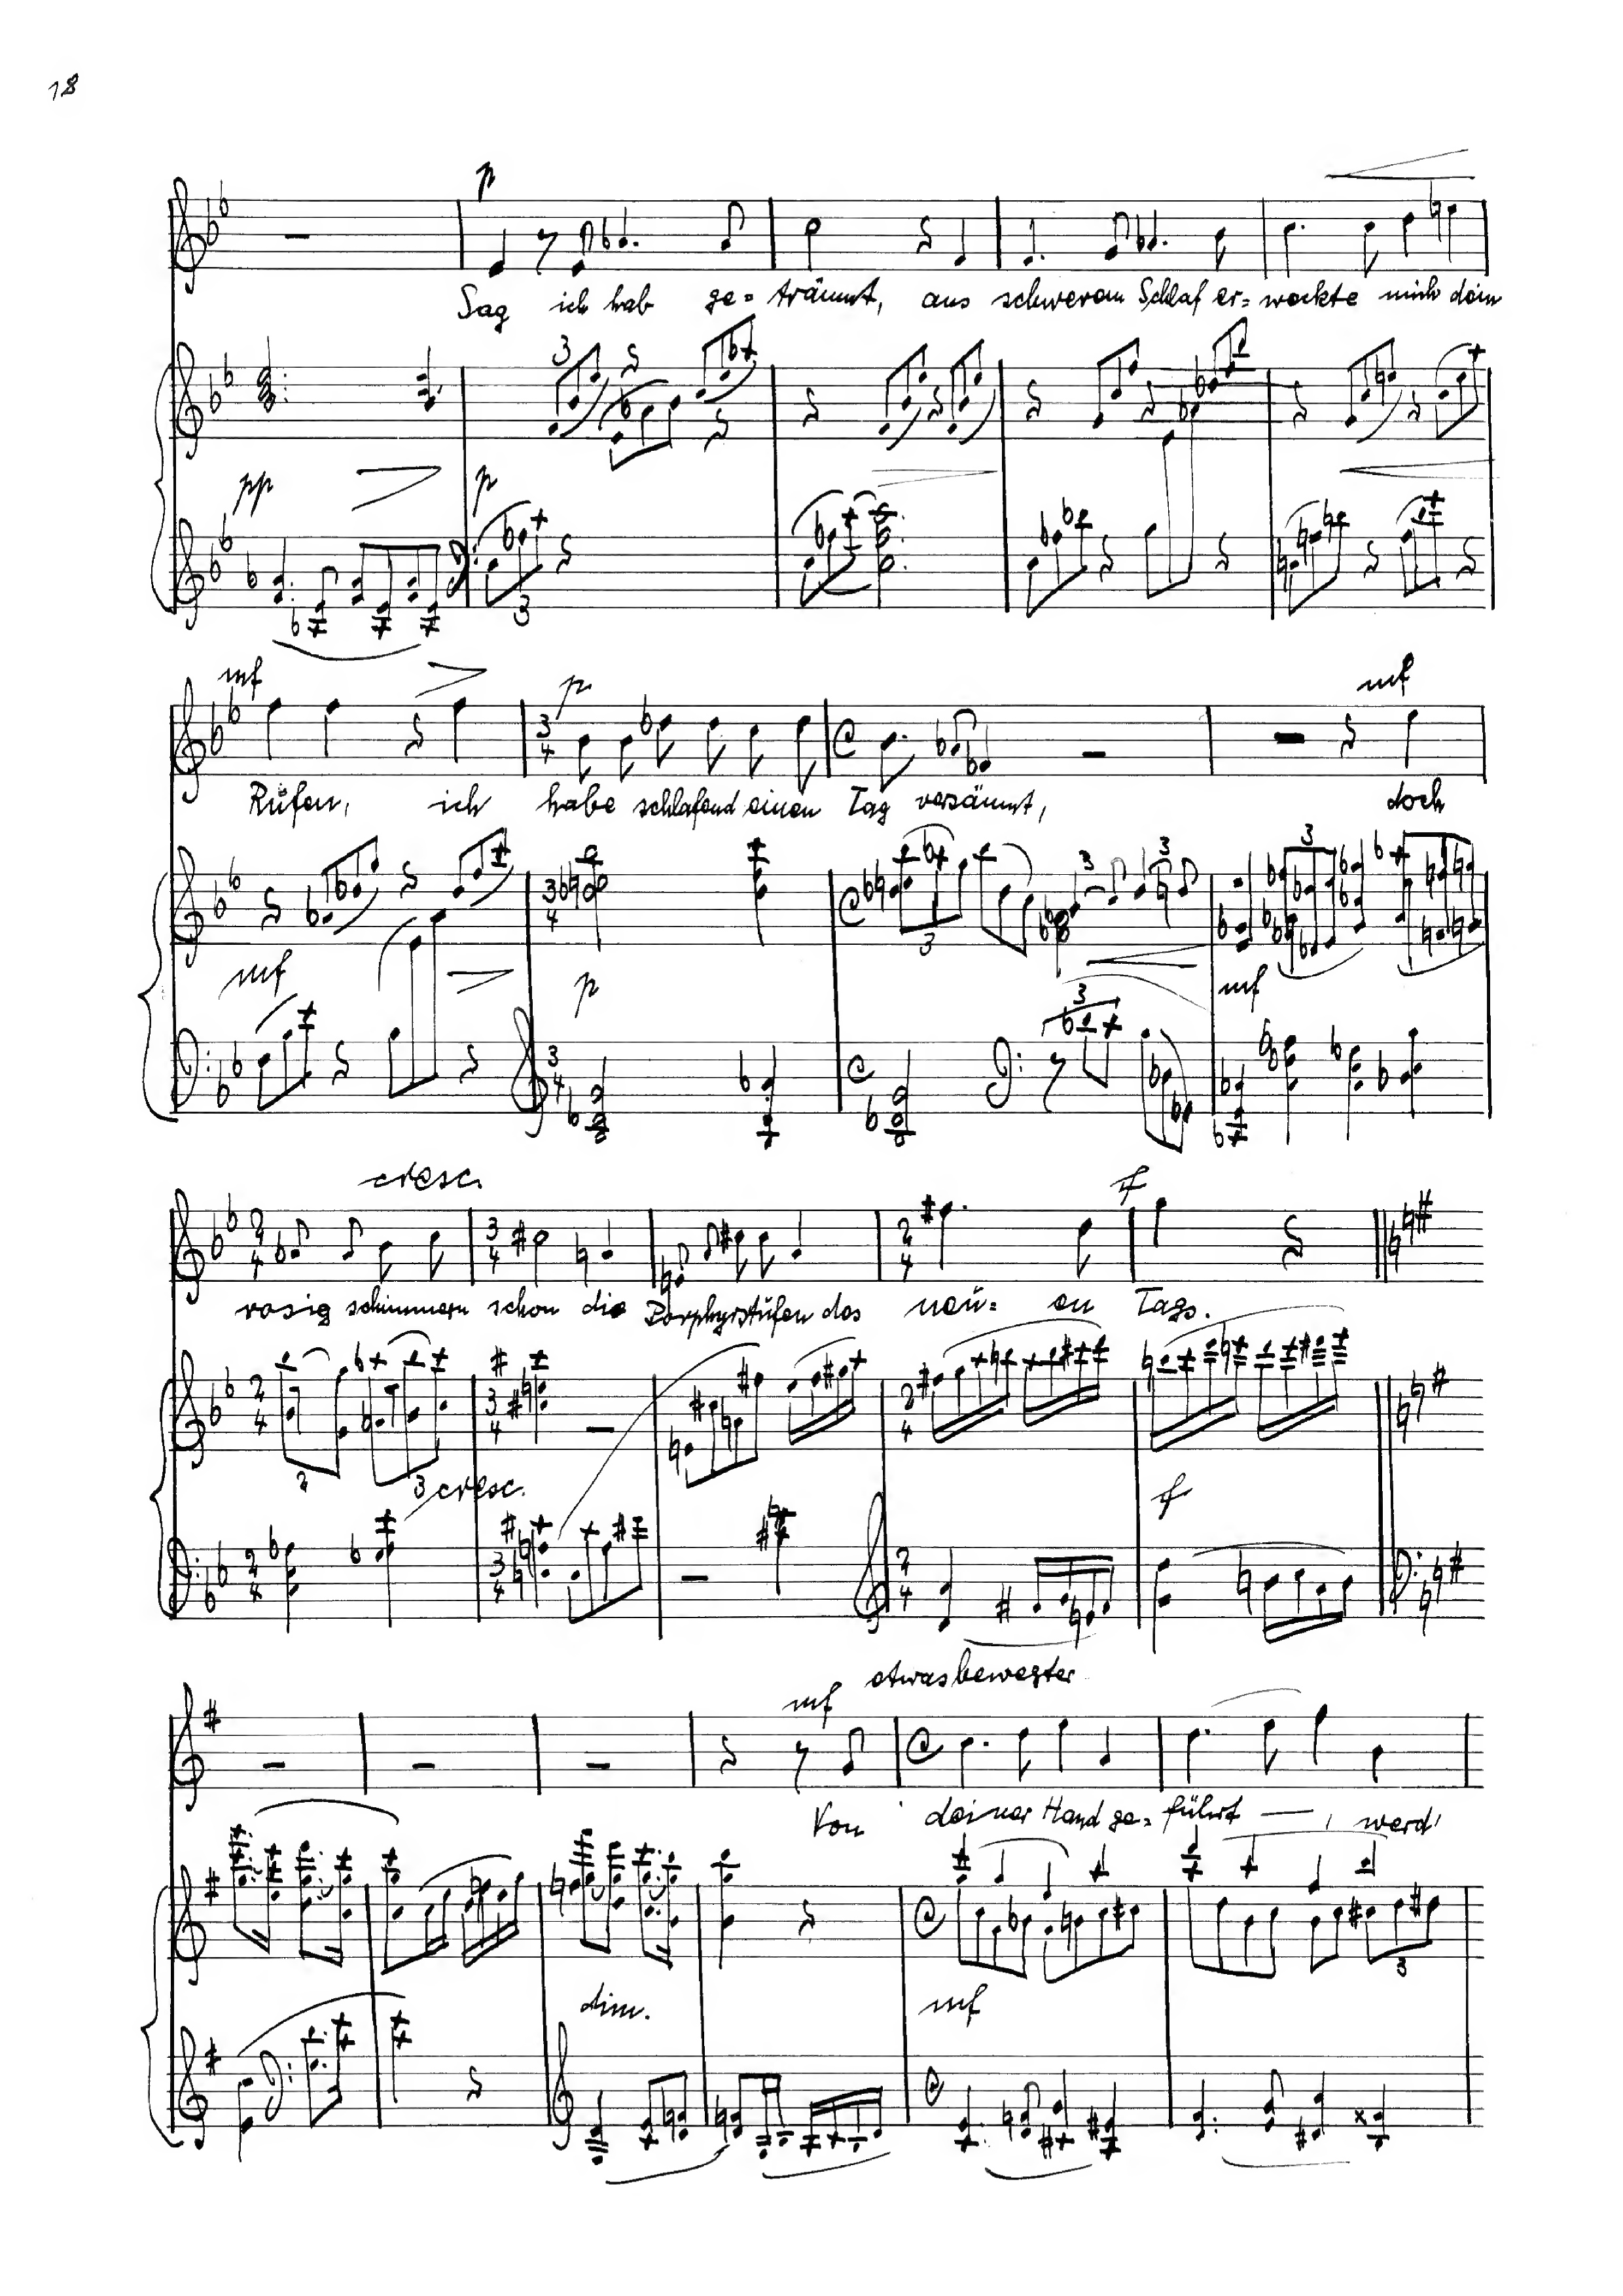 18
p
Sag ich hab ge= träumt, aus schwerem Schlaf er= weckte mich dein
3
pp p
3
mf p mf
Rufen, ich habe schlafend einen Tag versäumt, doch
3 3 3
3
mf p mf
3
cresc. f
rosig schimmern schon die Porphyrstufen des neu= en Tags.
2 3 cresc. f
etwas bewegter
mf
Von deiner Hand ge= führt —, werd'
3
dim. mf